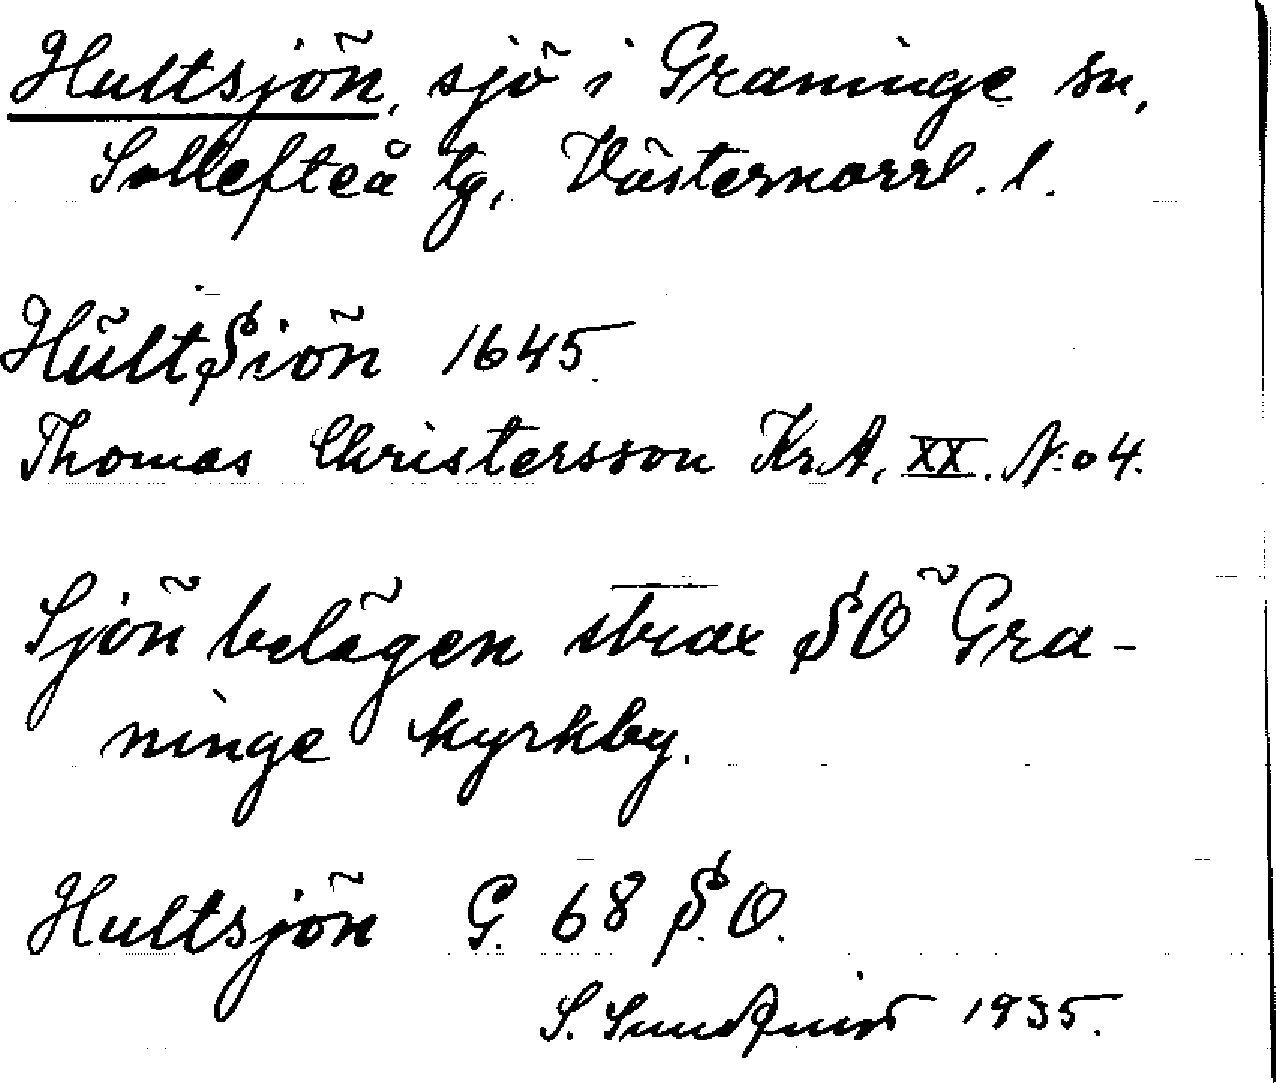 Hultsjön, sjö i Graninge sn,
Sollefteå tg, Västernorrl. l.
HültSiön 1645.
Thomas Christersson Kr.A. XX. N:o 4.
Sjön belägen strax SO Gra-
ninge kyrkby.
Hultsjön G. 68 S.O.
S. Sundquist 1935.